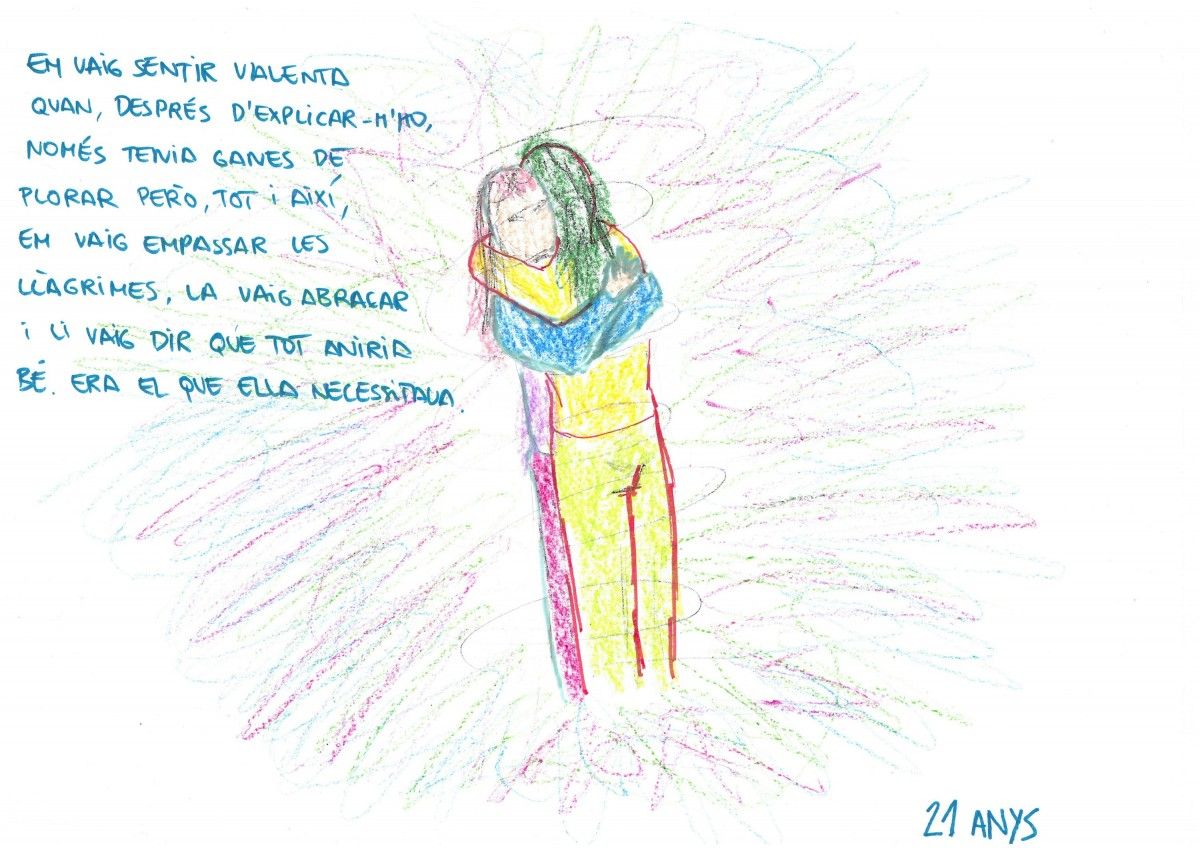 EM VAIG SENTIR VALENTA
QUAN, DESPRÉS D'EXPLICAR-M'HO,
NOMÉS TENIA GANES DE
PLORAR PERÒ, TOT I AIXÍ,
EM VAIG EMPASSAR LES
LLÀGRIMES, LA VAIG ABRAÇAR
I LI VAIG DIR QUE TOT ANIRIA
BÉ. ERA EL QUE ELLA NECESSITAVA.
21 ANYS